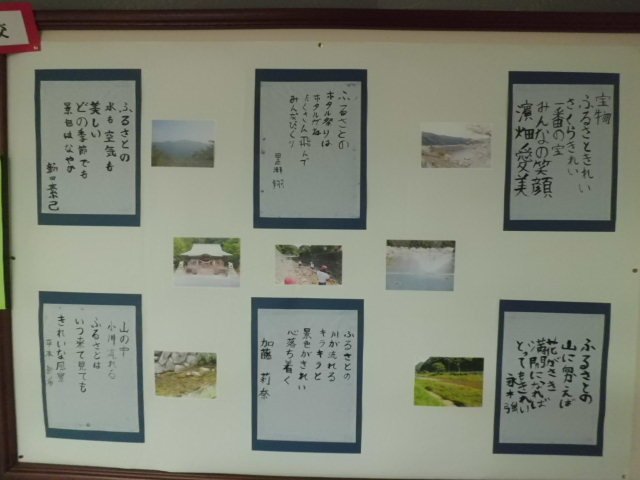 校
宝物
ふるさときれい
さくらきれい
一番の宝
みんなの笑顔
濱畑愛美
ふるさとの
ホタル祭りは
ホタルがね
たくさん飛んで
みんなびっくり
ふるさとの
水も空気も
美しい
どの季節でも
景色はなやか
ふるさとの
山に
花がさき
満開になれば
とってもきれい
ふるさとの
川が流れる
キラキラと
景色がきれい
心落ち着く
加藤 莉奈
山の中
小川流れる
ふるさとは
いつ来て見ても
きれいな風景